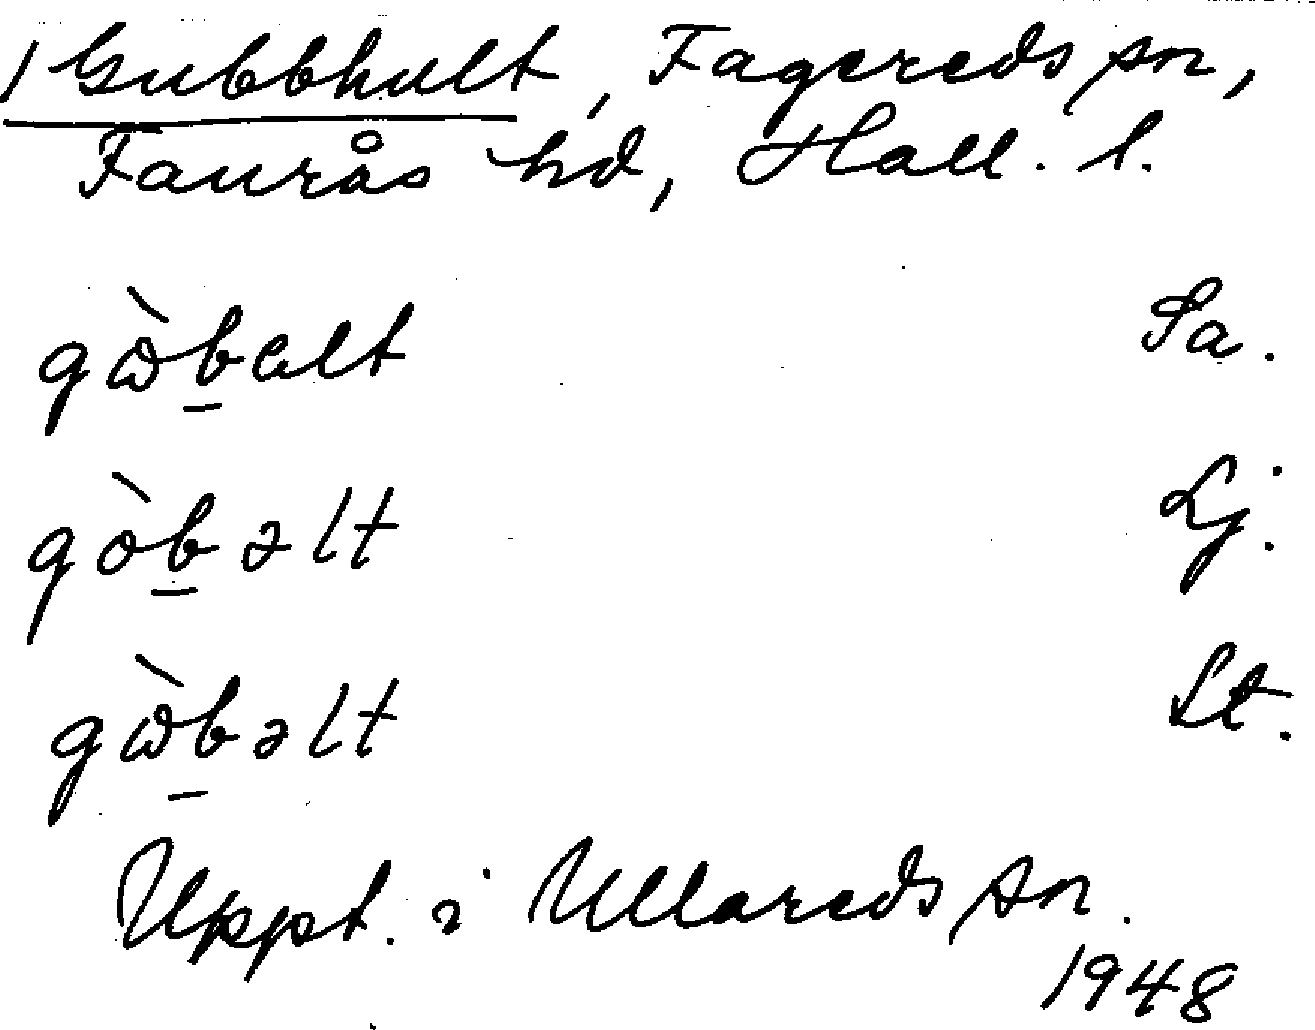 / Gubbhult, Fagereds sn,
Faurås hd, Hall. l.
gὼb̲ɐlt Sa.
gòb̲əlt Lj.
gὼb̲əlt St.
Uppt. i Ullareds sn.
1948